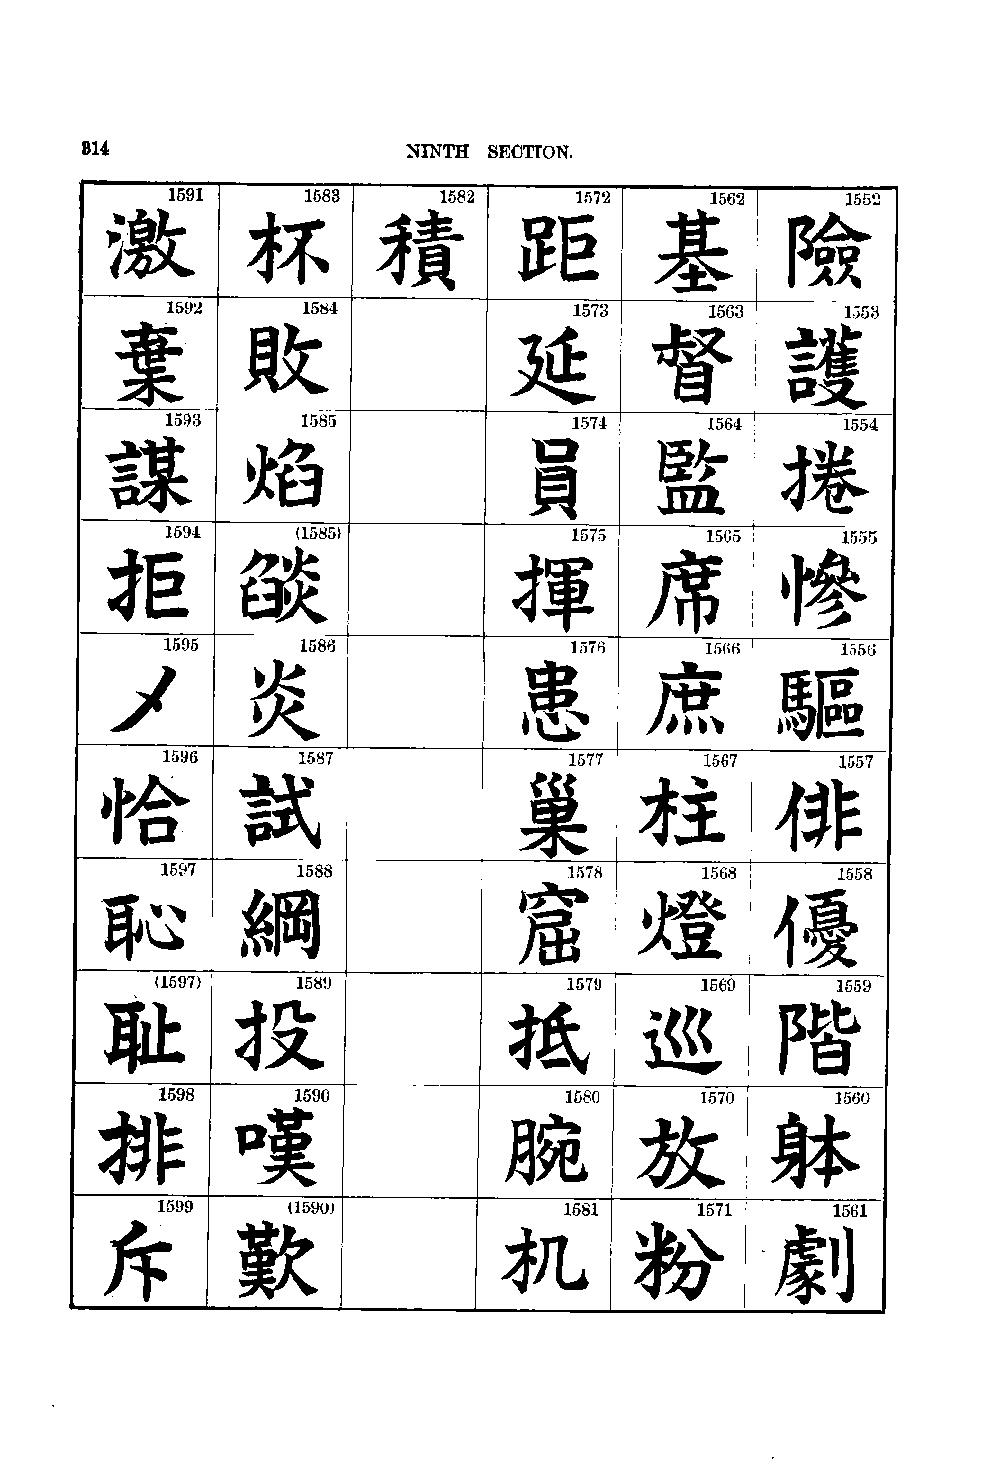 314
NINTH SECTION.
1552
險
1553
護
1554
捲
1555
慘
1556
驅
1557
俳
1558
優
1559
階
1560
躰
1561
劇
1562
基
1563
督
1564
監
1565
席
1566
庶
1567
柱
1568
燈
1569
巡
1570
放
1571
粉
1572
距
1573
延
1574
員
1575
揮
1576
患
1577
巢
1578
窟
1579
抵
1580
腕
1581
机
1582
積
1583
杯
1584
敗
1585
焰
(1585)
燄
1586
炎
1587
試
1588
綱
1589
投
1590
嘆
(1590)
歎
1591
激
1592
棄
1593
謀
1594
拒
1595
メ
1596
恰
1597
恥
(1597)
耻
1598
排
1599
斥